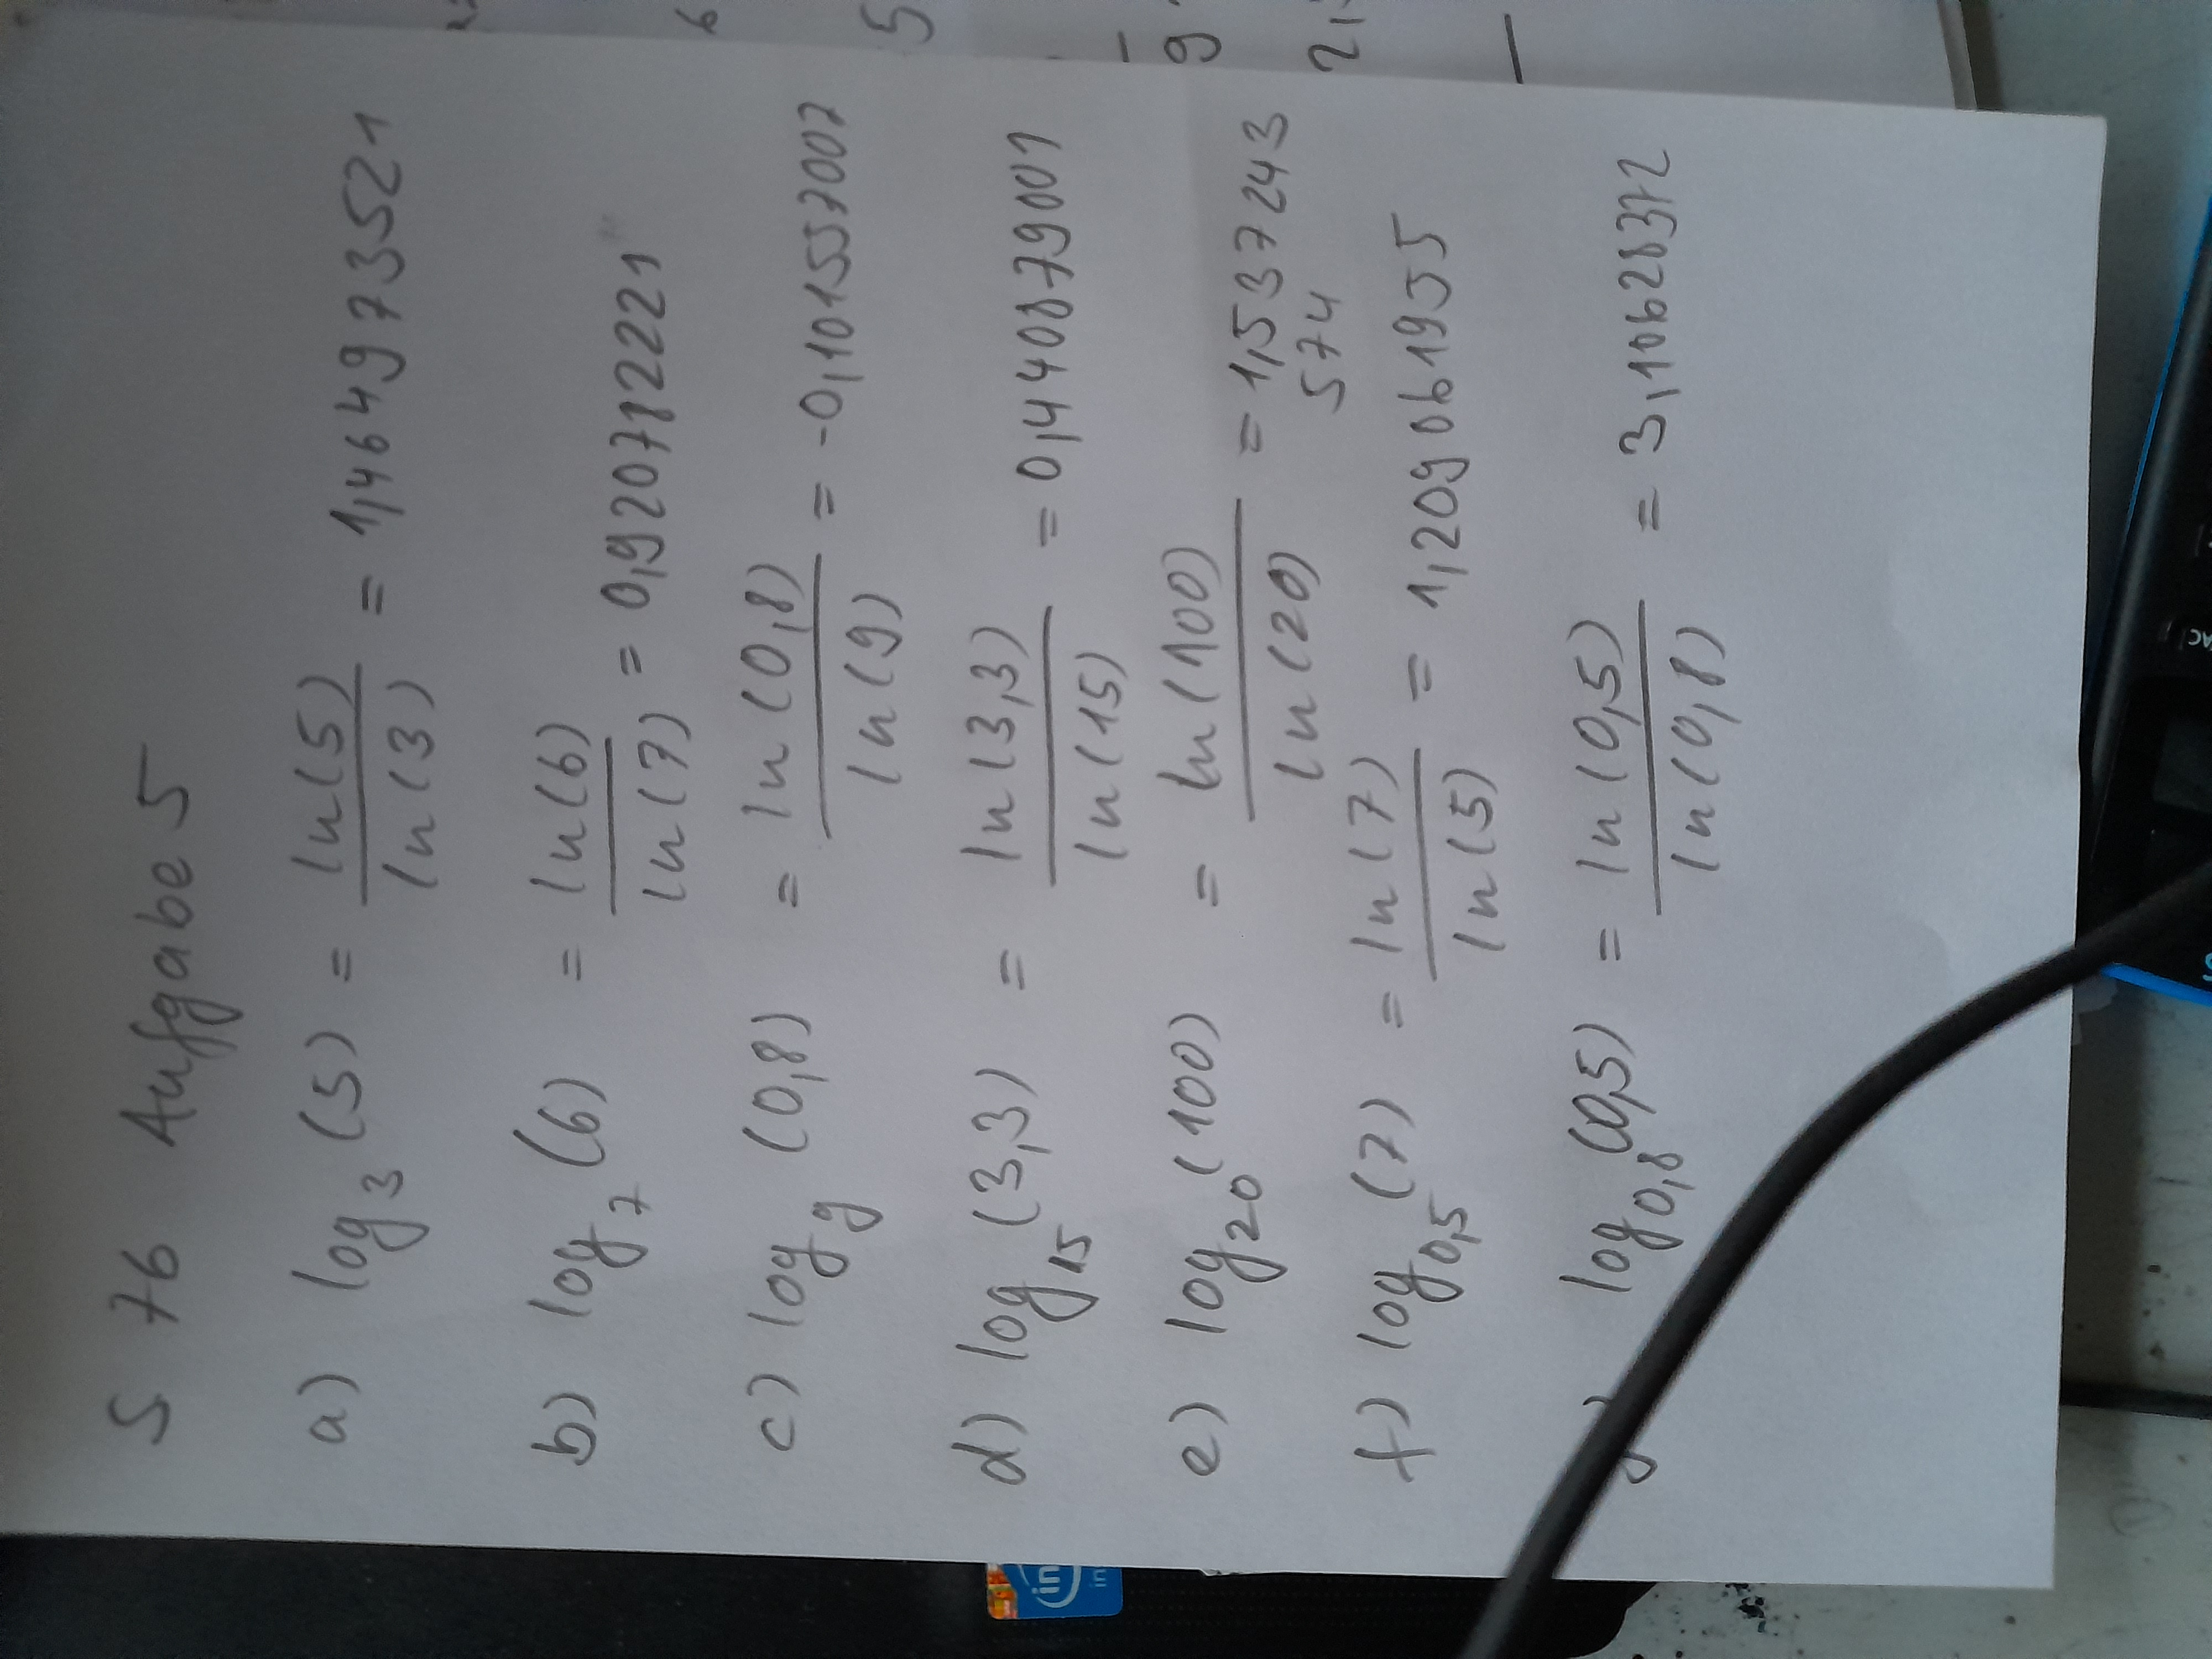 S 76 Aufgabe 5
a) log₃(5) = ln(5)/ln(3) = 1,464973521
b) log₇(6) = ln(6)/ln(7) = 0,920782221
c) log₉(0,8) = ln(0,8)/ln(9) = -0,1015557007
d) log₁₅(3,3) = ln(3,3)/ln(15) = 0,4408879001
e) log₂₀(100) = ln(100)/ln(20) = 1,537243
574
f) log₀,₅(7) = ln(7)/ln(5) = 1,209061955
log₀,₈(0,5) = ln(0,5)/ln(0,8) = 3,10628372